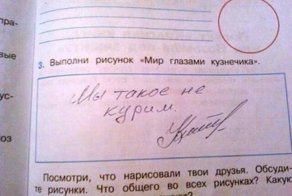 пра-
вые
3. Выполни рисунок «Мир глазами кузнечика».
Мы такое не
курим.
ус-
воз
Посмотри, что нарисовали твои друзья. Обсуди-
те рисунки. Что общего во всех рисунках? Какук